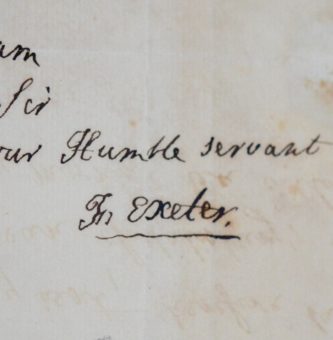 am
Sir
our Humble servant
Exeter.